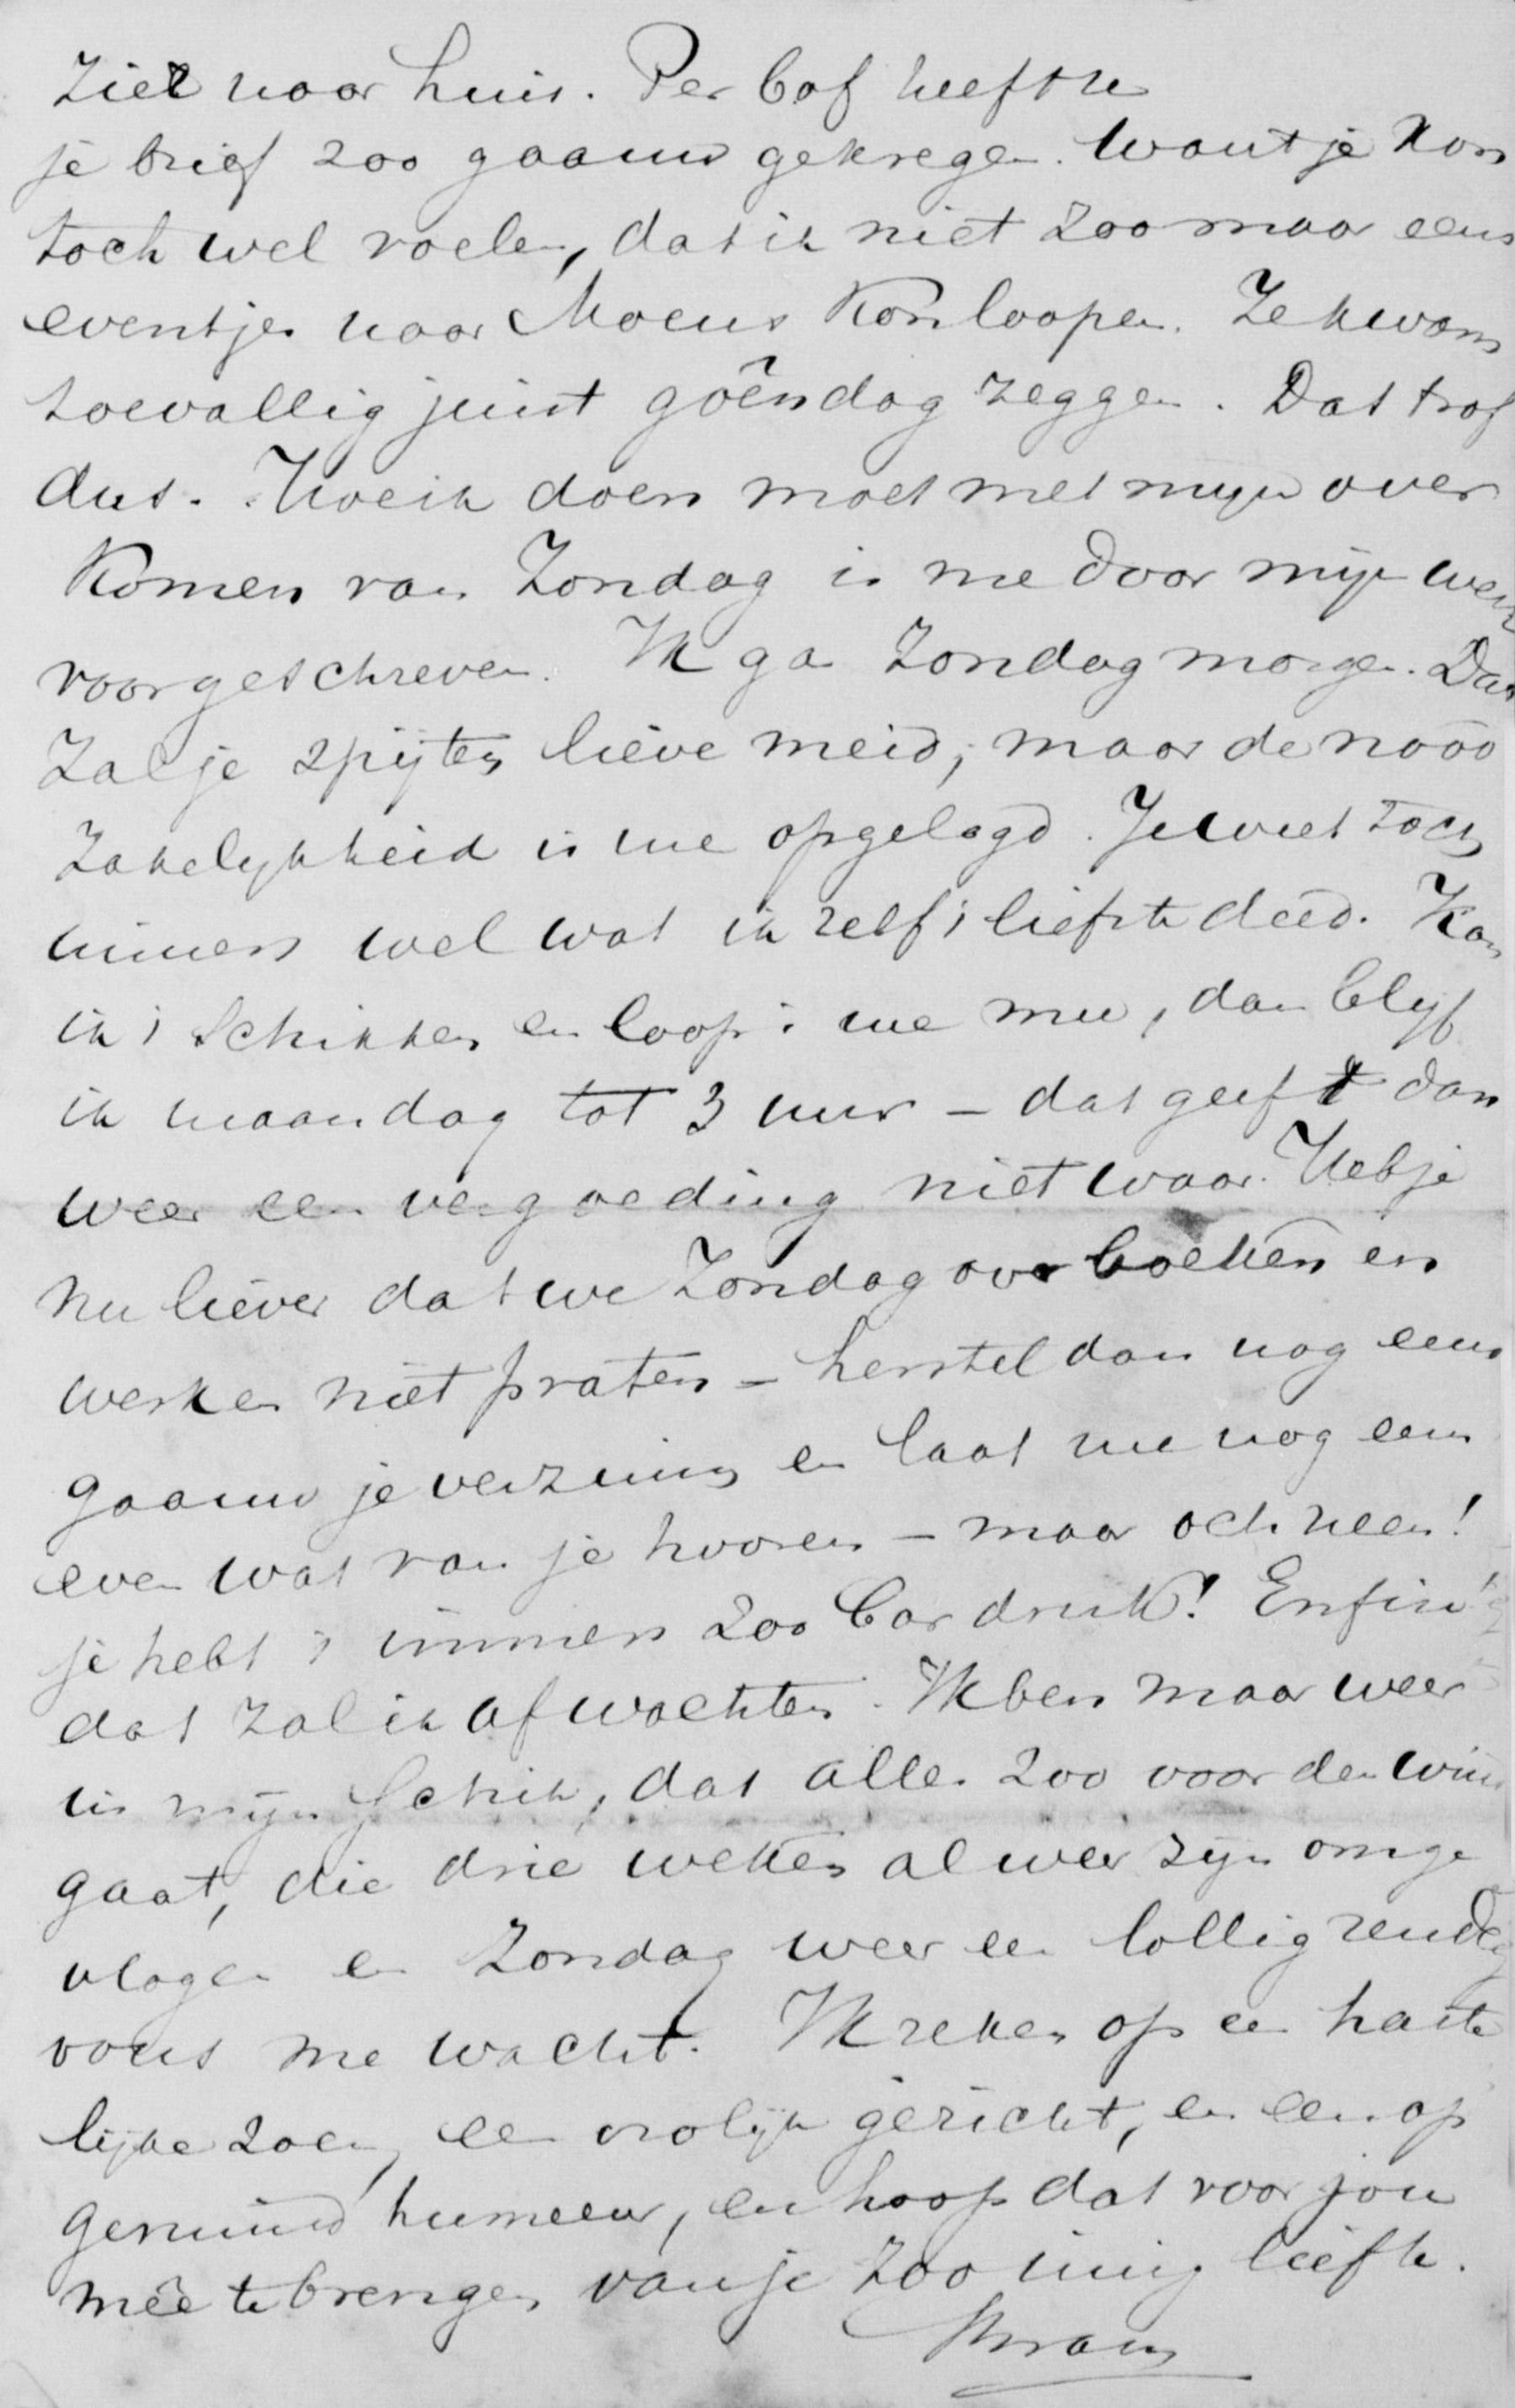 ziek naar huis. Per bof heeft ze
je brief zoo gaauw gekregen. want je kon
toch wel voelen, dat ik niet zoo maar eens
eventjes naar Moeus kon loopen. Ze kwam
toevallig juist goêndag zeggen. Dat trof
dus. Hoe ik doen moet met mijn over
komen van Zondag is me door mijn werk
voorgeschreven. Ik ga Zondag morgen. Dat
zal je spijten lieve meid, maar de nood
zakelijkheid is me opgelegd. Je weet toch
immers wel wat ik zelf 't liefste deed. Kan
ik 't schikken en loop 't me mee, dan blijf
ik maandag tot 3 uur – dat geeft dan
weer een vergoeding niet waar. Heb je
nu liever dat we Zondag over boeken en
werken niet praten – herstel dan nog eens
gaauw je verzuim en laat me nog eens
even wat van je hooren – maar och neen!
je hebt 't immers zoo bar druk! Enfin!
dat zal ik afwachten. Ik ben maar weer
in mijn schik, dat alles zoo voor den wind
gaat, die drie weken al weer zijn omge
vlogen en Zondag weer een lollig rendez
vous me wacht. Ik reken op een harte
lijke zoen, een vrolijk gezicht, en een op
geruimd humeur, en hoop dat voor jou
mêe te brengen, van je zoo innig liefh.
Bram